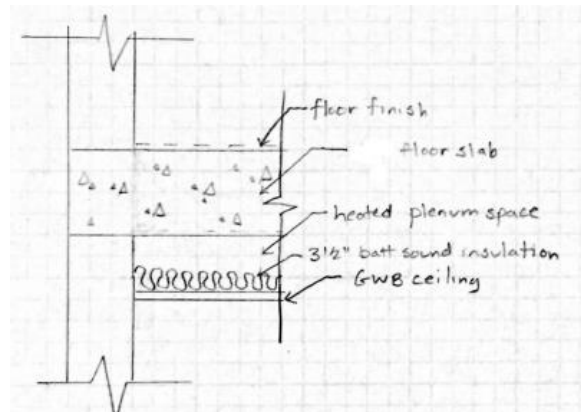 floor finish
floor slab
heated plenum space
3 1/2" batt sound insulation
GWB ceiling